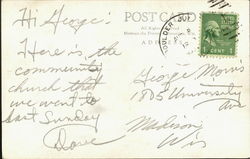 Hi George:
Here is the
community
church that
we went to
last Sunday
Dave
POST CARD
ADDRESS
BOULDER
1 CENT 1
George Morris
1805 University
Ave
Madison
Wis